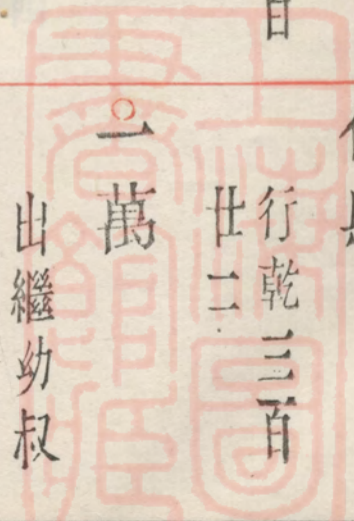 行乾三百
廿二
一萬
出繼幼叔